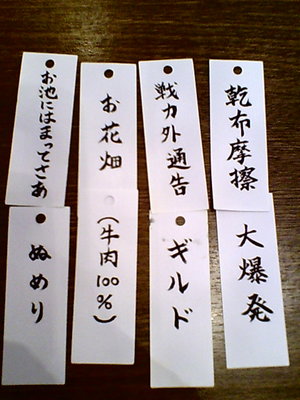 乾布摩擦
戦力外通告
お花畑
お池にはまってさあ
大爆発
ギルド
(牛肉100%)
ぬめり